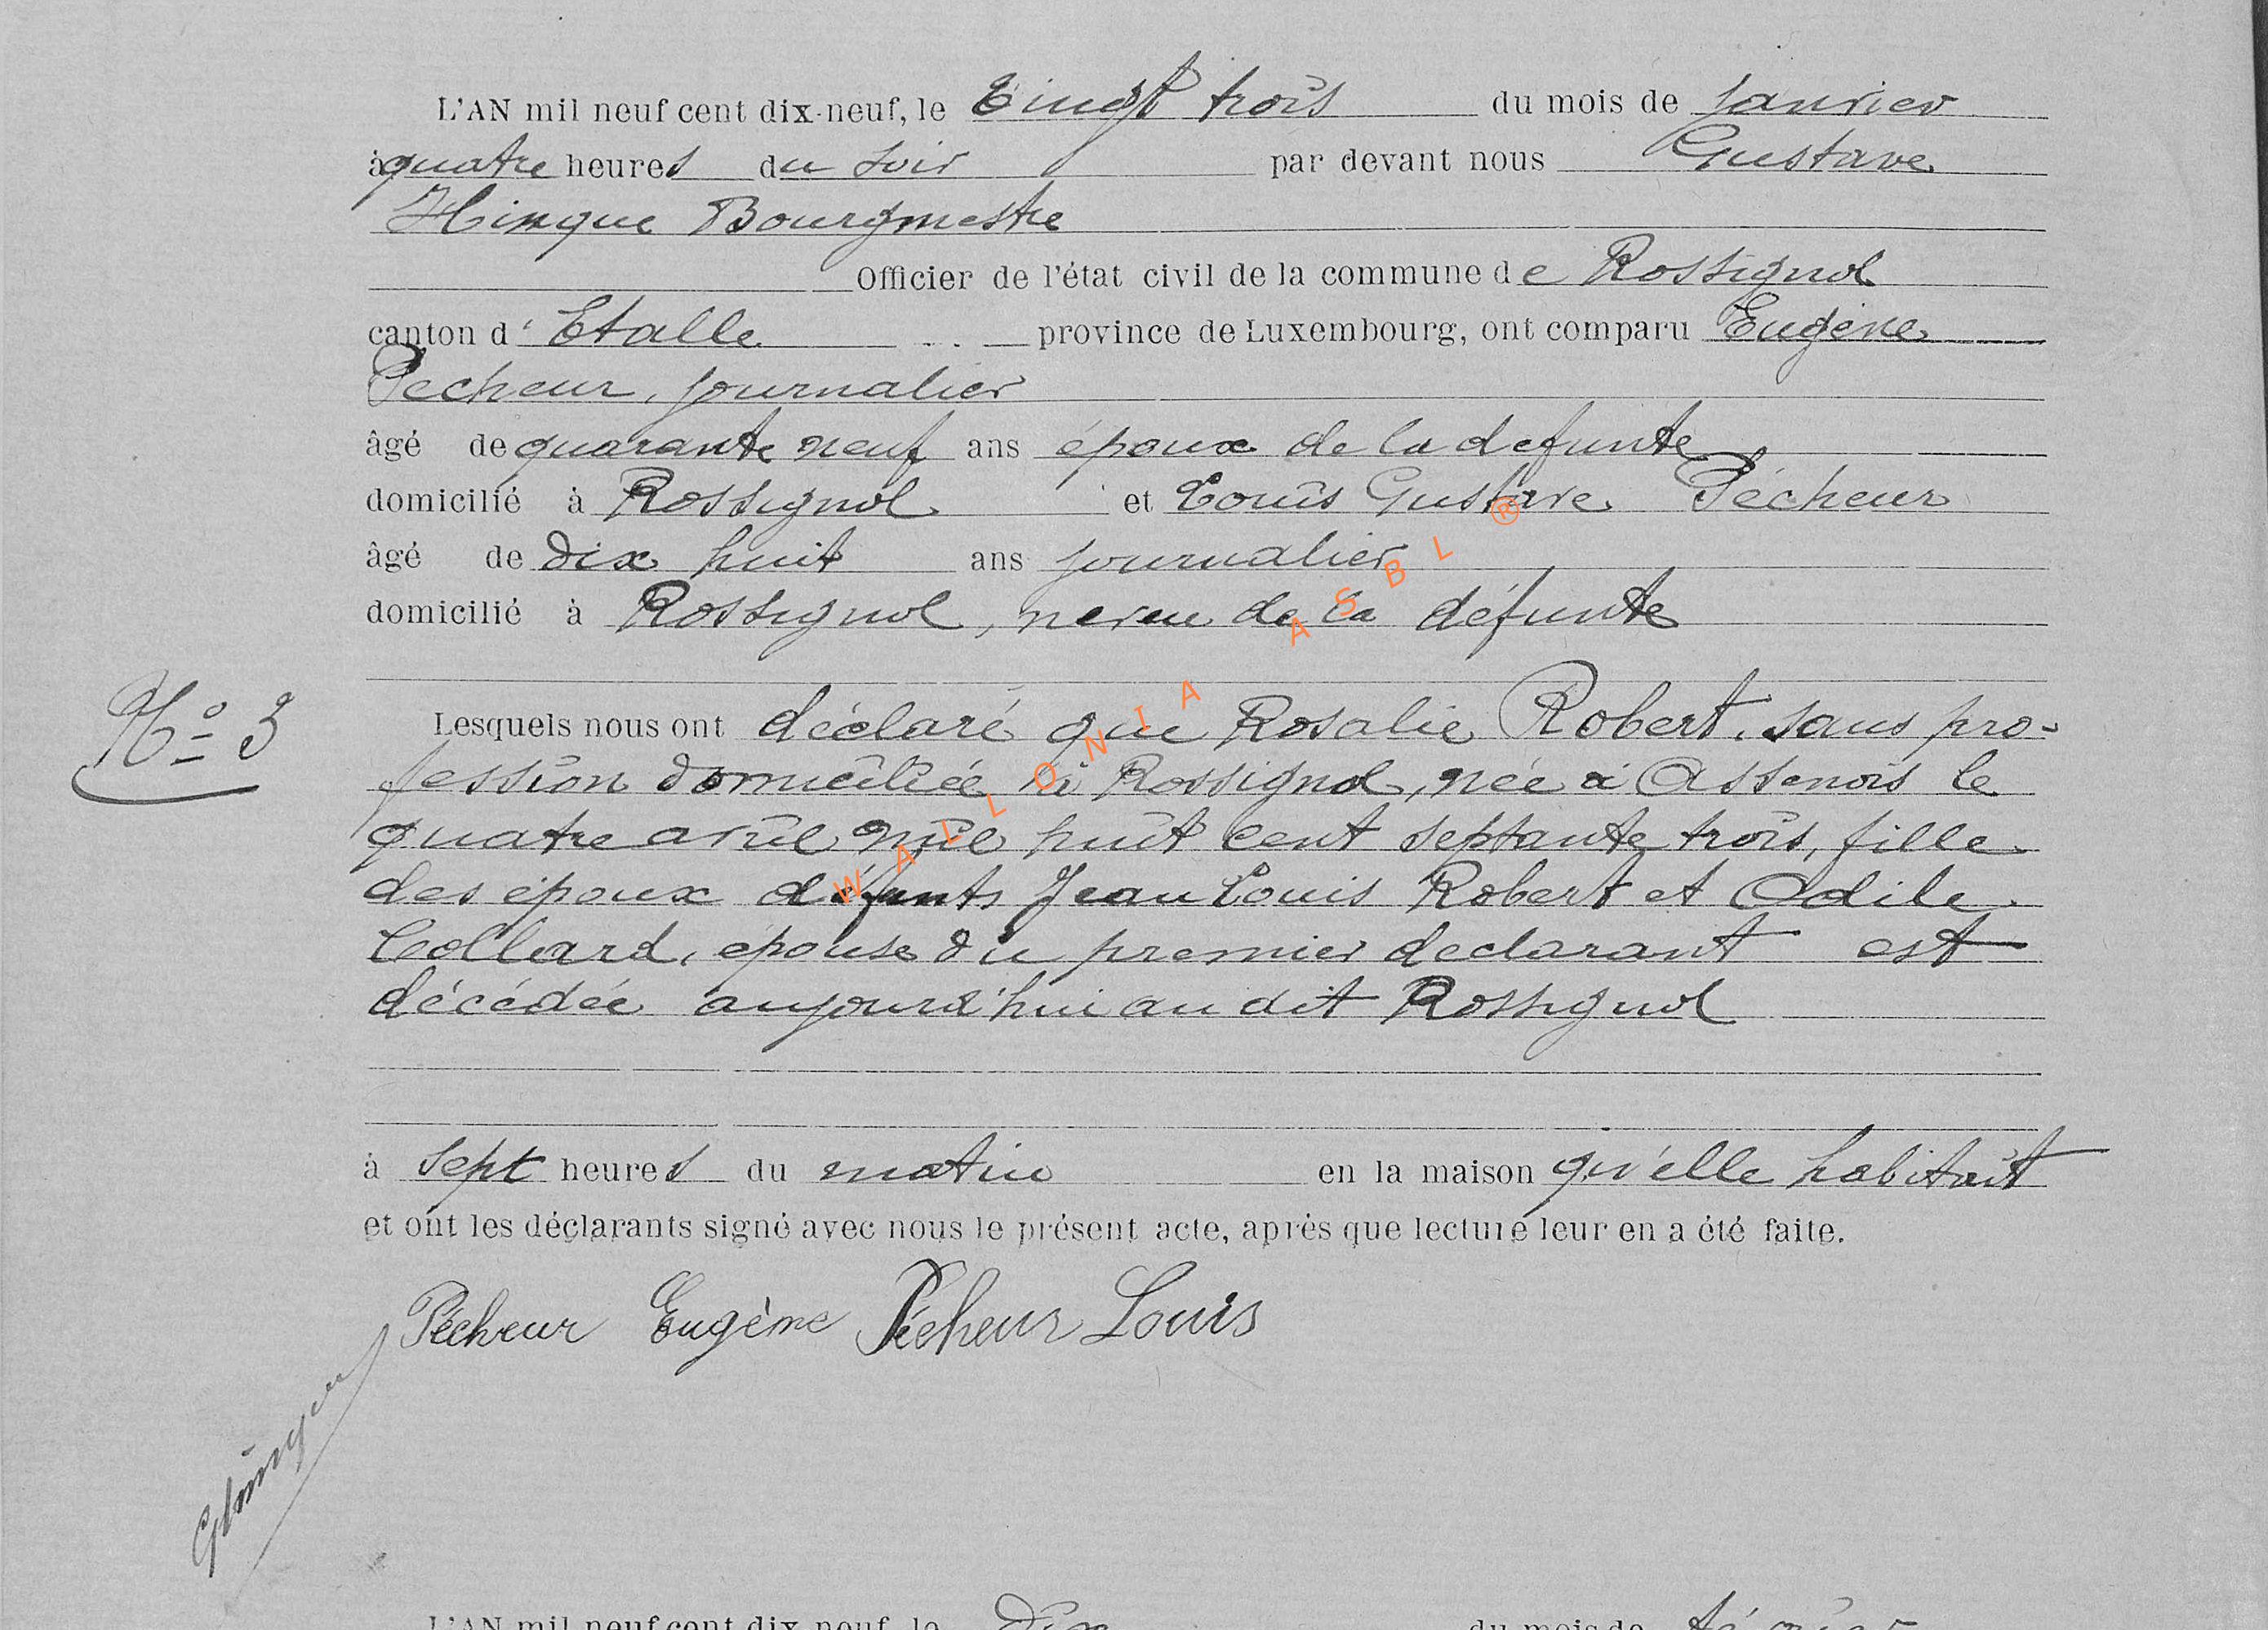 L'AN mil neuf cent dix-neuf, le Vingt trois du mois de Janvier
à quatre heures du soir par devant nous Gustave
Hinque Bourgmestre
Officier de l'état civil de la commune de Rossignol
canton d'Etalle province de Luxembourg, ont comparu Eugène
Pecheur, journalier
âgé de quarante neuf ans époux de la defunte
domicilié à Rossignol et Louis Gustave Pécheur
âgé de dix huit ans journalier
domicilié à Rossignol, neveu de la défunte
No 3
Lesquels nous ont déclaré que Rosalie Robert, sans pro-
fession domiciliée à Rossignol, née à Assenois le
quatre avril mil huit cent septante trois, fille
des époux défunts Jean Louis Robert et Odile
Collard, épouse du premier declarant est
décédée aujourd'hui au dit Rossignol
à sept heures du matin en la maison qu'elle habitait
et ont les déclarants signé avec nous le présent acte, après que lecture leur en a été faite.
Pécheur Eugène Pécheur Louis
GHinque
L'AN mil neuf cent dix-neuf, le Dix du mois de février
WALLONIA ASBL ®